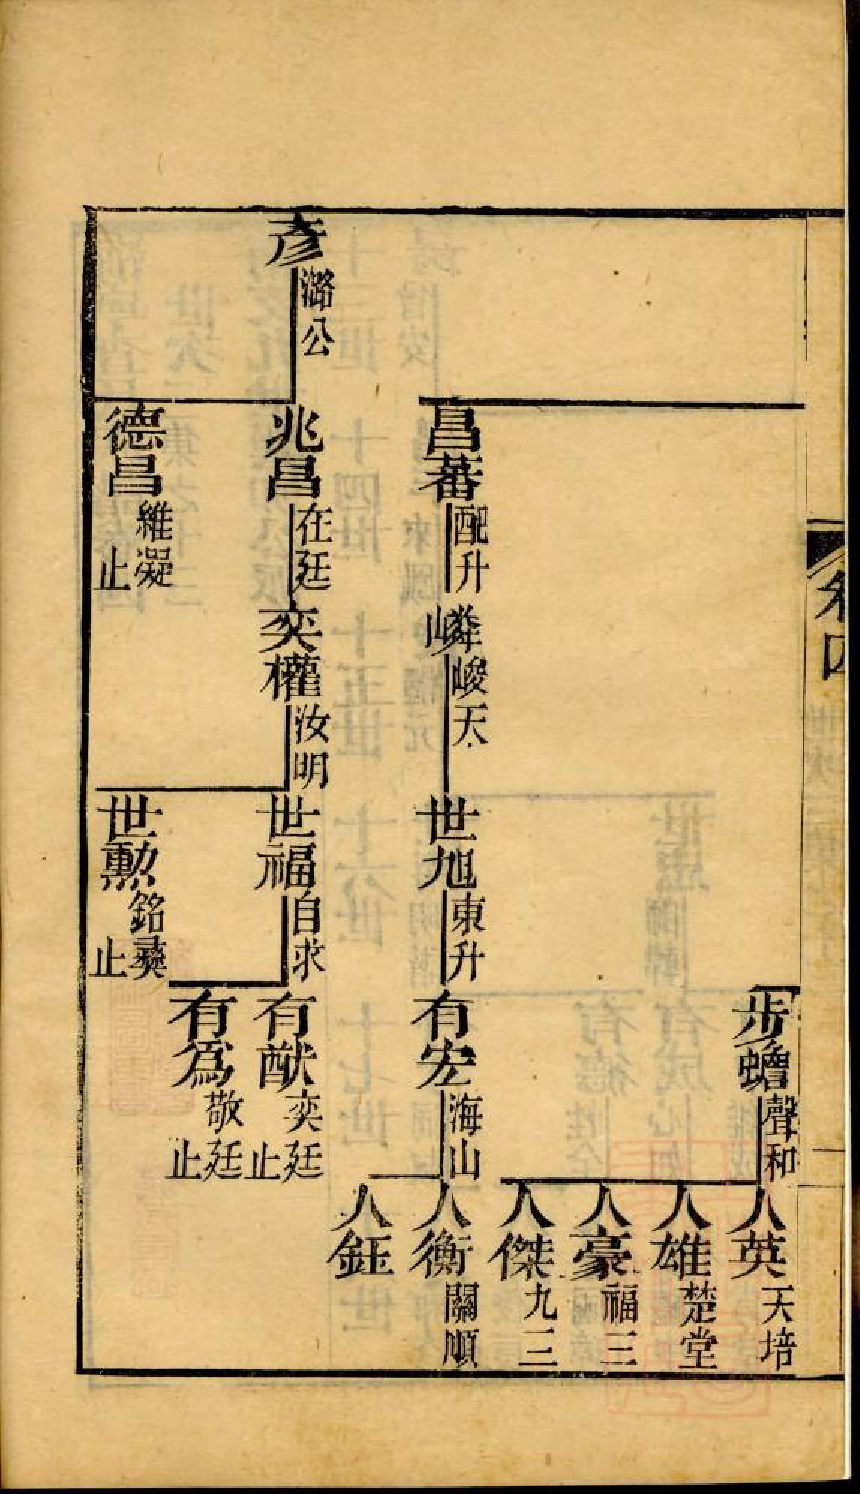 卷四
步蟾 聲和
人英 天培
人雄 楚堂
人豪 福三
人傑 九三
昌蕃 配升
嶙 峻天
世旭 東升
有宏 海山
人衡 關順
人鈺
彥 潞公
兆昌 在廷
奕權 汝明
世福 自求
有猷 奕廷 止
有為 敬廷 止
德昌 維凝 止
世勳 銘彝 止